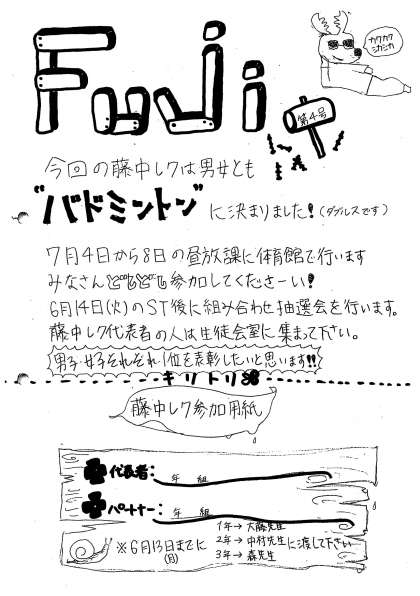 Fuji
カクカク
シカジカ
第4号
今回の藤中レクは男女とも
"バドミントン"に決まりました!(ダブルスです)
7月4日から8日の昼放課に体育館で行います
みなさんどしどし参加してくださーい!
6月14日(火)のST後に組み合わせ抽選会を行います。
藤中レク代表者の人は生徒会室に集まって下さい。
男子・女子それぞれ1位を表彰したいと思います!!
キリトリ
藤中レク参加用紙
代表者: 年 組
パートナー: 年 組
※6月13日までに
(月)
1年→大藤先生
2年→中村先生に渡して下さい
3年→森先生